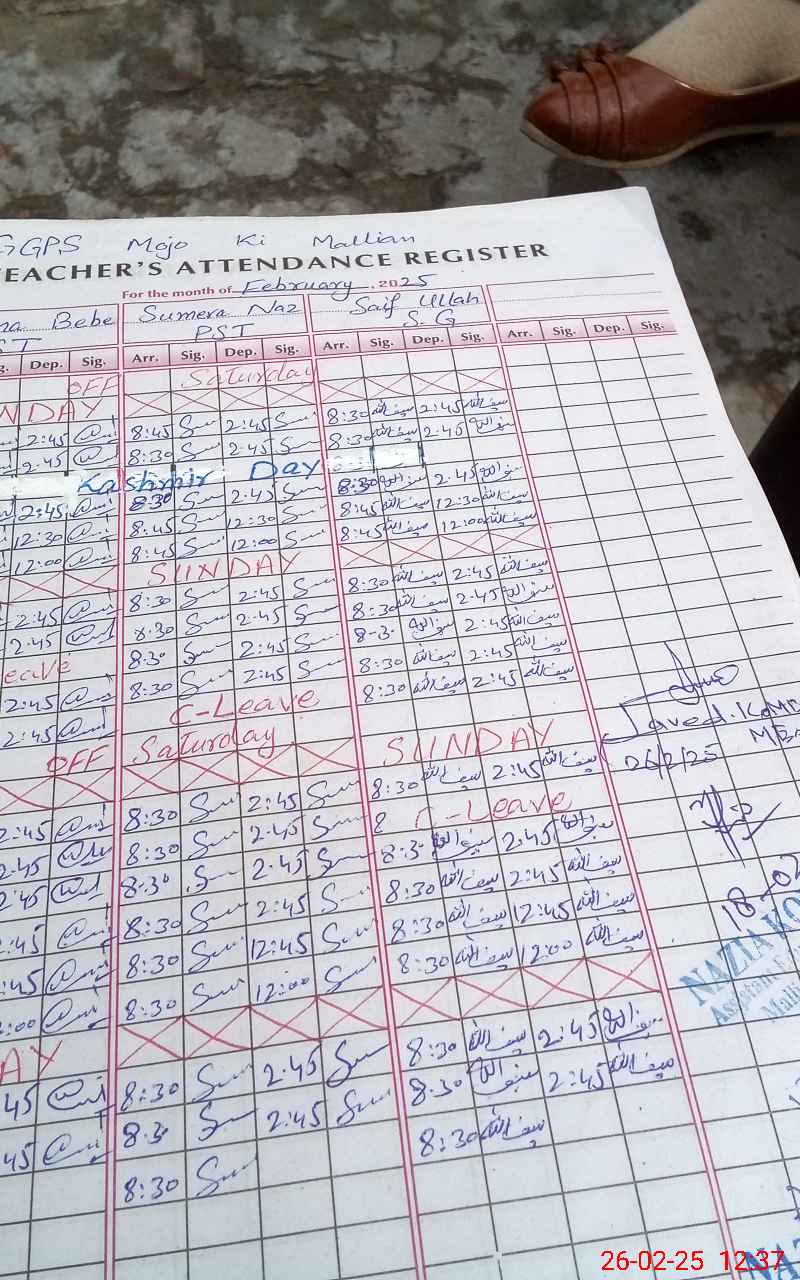 GGPS Mojo Ki Mallian
TEACHER'S ATTENDANCE REGISTER
For the month of February, 2025
Bebe Sumera Naz Saif Ullah
PST S.G
Dep. Sig. Arr. Sig. Dep. Sig. Arr. Sig. Dep. Sig. Arr. Sig. Dep. Sig.
OFF Saturday
NDAY
2:45 8:45 2:45 8:30 سیف اللہ 2:45 سیف اللہ
2:45 8:30 2:45 8:30 سیف اللہ 2:45 سیف اللہ
Kashmir Day
2:45 8:30 2:45 8:30 سیف اللہ 2:45 سیف اللہ
12:30 8:45 12:30 8:45 سیف اللہ 12:30 سیف اللہ
12:00 8:45 12:00 8:45 سیف اللہ 12:00 سیف اللہ
SUNDAY
2:45 8:30 2:45 8:30 سیف اللہ 2:45 سیف اللہ
2:45 8:30 2:45 8:30 سیف اللہ 2:45 سیف اللہ
eave 8:30 2:45 8-3 سیف اللہ 2:45 سیف اللہ
2:45 8:30 2:45 8:30 سیف اللہ 2:45 سیف اللہ
2:45 C-Leave 8:30 سیف اللہ 2:45 سیف اللہ
OFF Saturday
SUNDAY
2:45 8:30 2:45 8:30 سیف اللہ 2:45 سیف اللہ
2:45 8:30 2:45 8 C-Leave
2:45 8:30 2:45 8:30 سیف اللہ 2:45 سیف اللہ
2:45 8:30 2:45 8:30 سیف اللہ 2:45 سیف اللہ
:45 8:30 12:45 8:30 سیف اللہ 12:45 سیف اللہ
:00 8:30 12:00 8:30 سیف اللہ 12:00 سیف اللہ
AY
45 8:30 2:45 8:30 سیف اللہ 2:45 سیف اللہ
45 8:30 2:45 8:30 سیف اللہ 2:45 سیف اللہ
8:30 8:30 سیف اللہ
Javed
26/2/25
18-02
NAZIA KO
Assistant E
Malli
NAZ
26-02-25 12:37